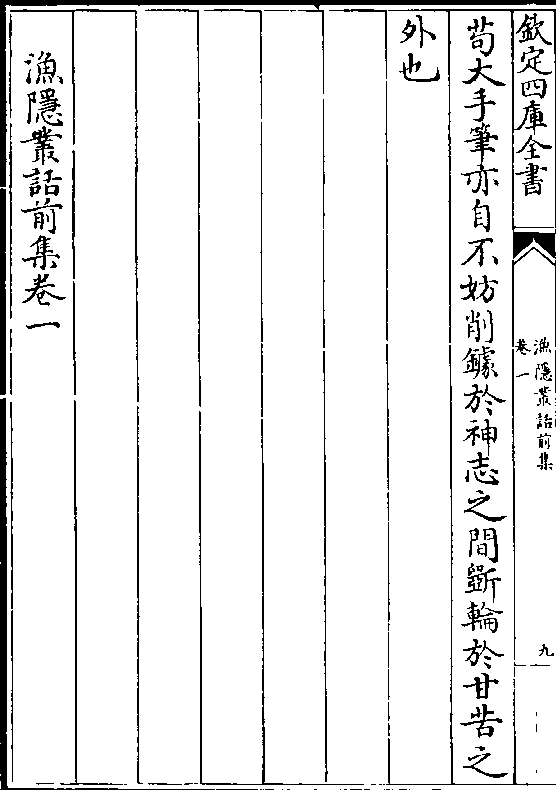 欽定四庫全書
漁隱叢話前集
卷一
九
苟大手筆亦自不妨削鐻於神志之間斵輪於甘苦之
外也
漁隱叢話前集卷一